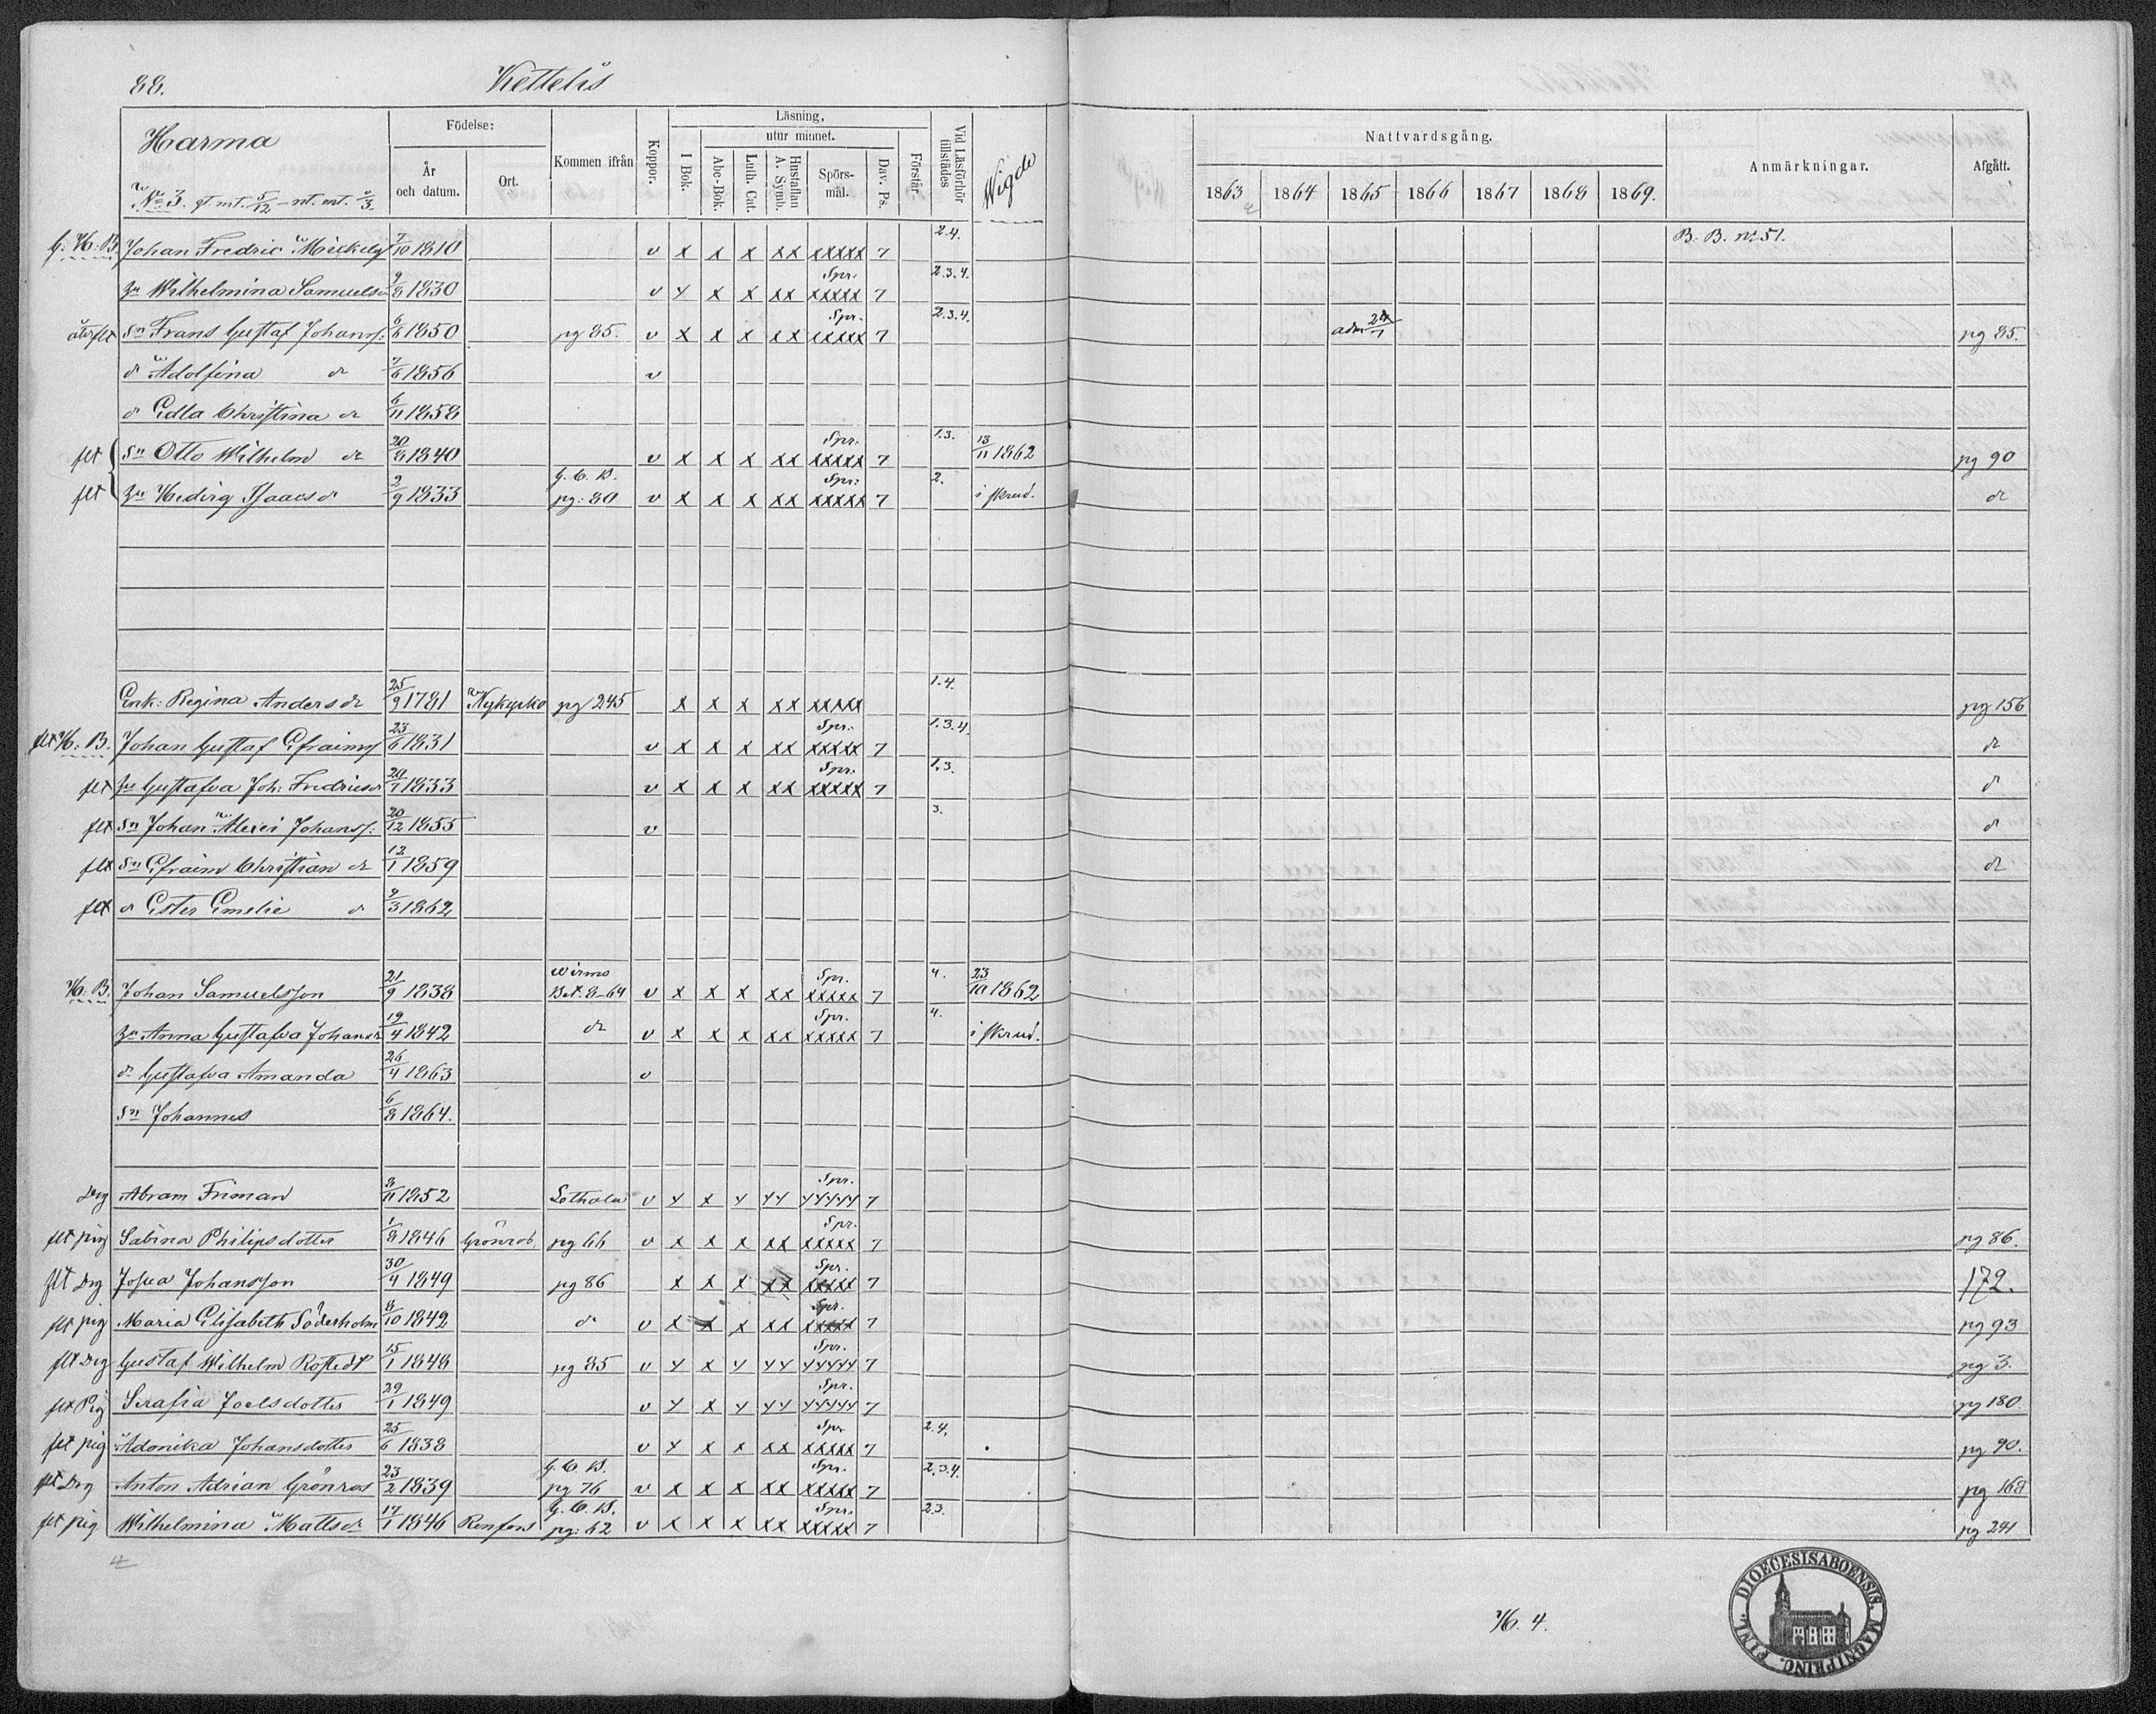 88. Kettelis
Harma
Födelse: År och datum. Ort. Kommen ifrån Koppor. Läsning, I Bok. utur minnet. Abc-Bok. Luth. Cat. Hustaflan A. Symb. Spörsmål. Dav. Ps. Förstår Vid Läsförhör tillstädes Wigde
Nattvardsgång. 1863 1864 1865 1866 1867 1868 1869. Anmärkningar. Afgått.
No 3. gt mt. 5/12 – nt. mt. 2/3.
g. H. B. Johan Fredric Mickels 7/10 1810 v x x x xx xxxxx 7 2.4. B. B. no 51.
Hu Wilhelmina Samuelsd 9/8 1830 v y x x xx Spr. xxxxx 7 2.3.4.
återflt Sn Frans Gustaf Johanss: 6/6 1850 pg 85. v x x x xx Spr. xxxxx 7 2.3.4. adm 24/7 pg 85.
dr Adolfina dr 7/6 1856 v
dr Edla Christina dr 6/11 1858
flt Sn Otto Wilhelm dr 20/8 1840 v x x x xx Spr. xxxxx 7 1.3. 13/11 1862 pg 90
flt Hu Hedvig Isaacsdr 2/9 1833 g. C. B. pg: 80 v x x x xx Spr: xxxxx 7 2. i skrud. dr
Enk: Regina Andersdr 25/9 1781 Nykyrko pg 245 x x x xx xxxxx 1.4. pg 156
flt H. B. Johan Gustaf Efraims 23/6 1831 v x x x xx Spr. xxxxx 7 1.3.4. dr
flt Hu Gustafva Joh: Fredricsd 20/7 1833 v x x x xx Spr. xxxxx 7 1.3. dr
flt Sn Johan Alexi Johanss: 20/12 1855 v 3. dr
flt Sn Efraim Christian dr 12/1 1859 dr
flt dr Ester Emelie dr 9/3 1862
H. B. Johan Samuelsson 21/9 1838 Wirmo Bet. 8–64 v x x x xx Spr. xxxxx 7 4. 23/10 1862
Hu Anna Gustafva Johansd 19/4 1842 dr v x x x xx Spr. xxxxx 7 4. i skrud.
dr Gustafva Amanda 26/4 1863 v
Sn Johannes 6/8 1864.
Drg Abram Friman 3/11 1852 Lethala v y x y yy Spr. yyyyy 7
flt pig Sabina Philipsdotter 1/8 1846 Grönrob. pg 66 v x x x xx Spr. xxxxx 7 pg 86.
flt Drg Josua Johansson 30/4 1849 pg 86 x x x xx Spr. xxxxx 7 172.
flt pig Maria Elisabeth Söderholm 8/10 1842 dr v x x x xx Spr. xxxxx 7 pg 93
flt Drg Gustaf Wilhelm Rostedt 15/1 1848 pg 85 v y x y yy Spr. yyyyy 7 pg 3.
flt Pig Serafia Joelsdotter 29/1 1849 v y x y yy Spr. yyyyy 7 pg 180.
flt pig Adonika Johansdotter 25/6 1838 v y x x xx Spr xxxxx 7 2.4. pg 90.
flt Drg Anton Adrian Grönros 23/2 1839 g. C. B. pg 76 v x x x xx Spr. xxxxx 7 2.3.4. pg 168
flt pig Wilhelmina Mattsdr 17/1 1846 Renfors g. C. B. pg: 62 v x x x xx Spr. xxxxx 7 2.3. pg 241
4
H. 4.
DIOECESIS ABOENSIS. MAGNI PRINC. FINL.